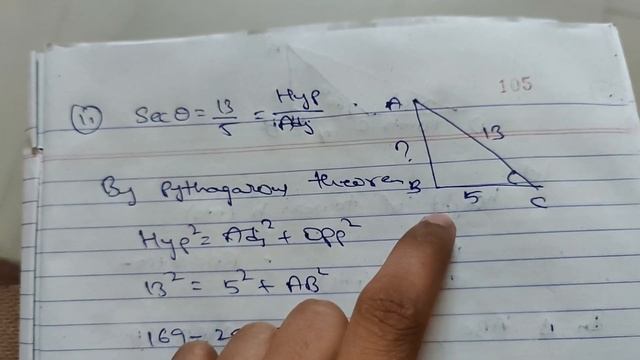 105
ii Secθ = 13/5 = Hyp/Adj
A
13
?
By Pythagorous theorem
B
5
C
Hyp² = Adj² + Opp²
13² = 5² + AB²
169 -